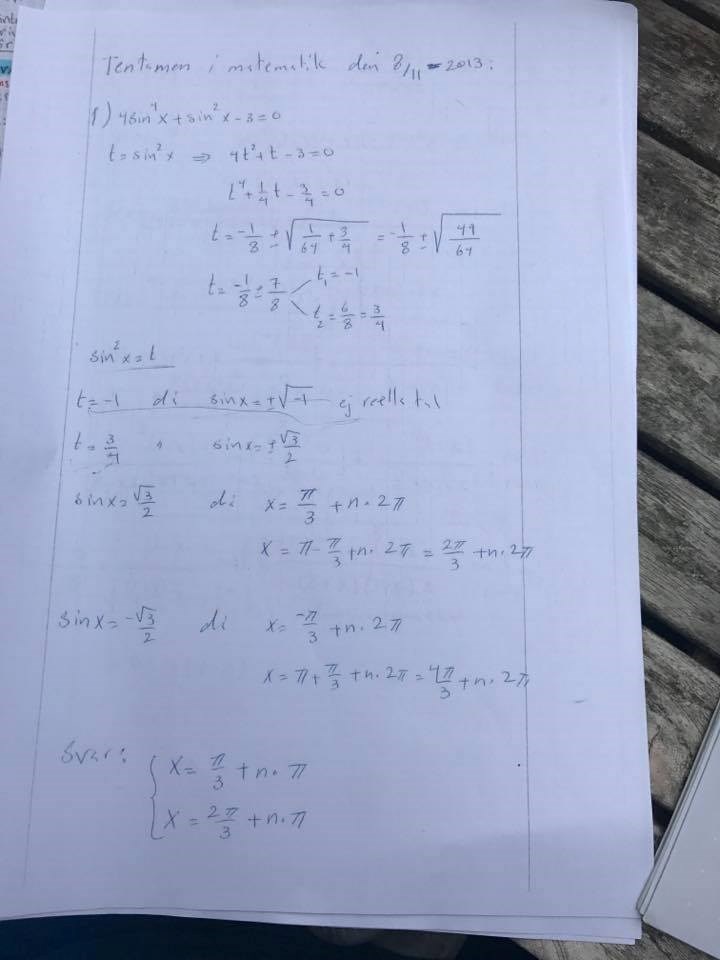 Tentamen i matematik den 8/11-2013:
1) 4sin⁴x + sin²x - 3 = 0
t = sin²x ⇒ 4t² + t - 3 = 0
t⁴ + 1/4 t - 3/4 = 0
t = -1/8 ± √(1/64 + 3/4) = -1/8 ± √(49/64)
t = -1/8 ± 7/8
t₁ = -1
t₂ = 6/8 = 3/4
sin²x = t
t = -1 di sinx = ±√-1 ej reella tal
t = 3/4 , sinx = ±√3/2
sinx = √3/2 di x = π/3 + n·2π
x = π - π/3 + n·2π = 2π/3 + n·2π
sinx = -√3/2 di x = -π/3 + n·2π
x = π + π/3 + n·2π = 4π/3 + n·2π
Svar: { x = π/3 + n·π
x = 2π/3 + n·π